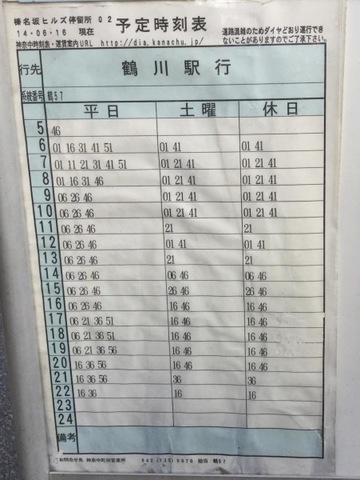 榛名坂ヒルズ停留所 02 予定時刻表
14-06-16 現在
神奈中時刻表・運賃案内URL http://dia.kanachu.jp/
道路混雑のためダイヤどおり運行でき
ないことがありますのでご了承下さい。
行先 鶴川駅行
系統番号 鶴57
平日 土曜 休日
5 46
6 01 16 31 41 51 01 41 01 41
7 01 11 21 31 41 51 01 21 41 01 21 41
8 01 16 31 46 01 21 41 01 21 41
9 06 26 46 01 21 41 01 21 41
10 06 26 46 01 21 41 01 21 41
11 06 26 46 21 21
12 06 26 46 01 41 01 41
13 06 26 46 21 21
14 06 26 46 06 46 06 46
15 06 26 46 26 46 26 46
16 06 26 46 16 46 16 46
17 06 21 36 51 16 46 16 46
18 06 21 36 51 16 46 16 46
19 06 21 36 56 16 46 16 46
20 16 36 56 16 46 16 46
21 16 36 56 36 36
22 16 36 16 16
23
24
備考
お問合せ先 神奈中町田営業所 鶴57